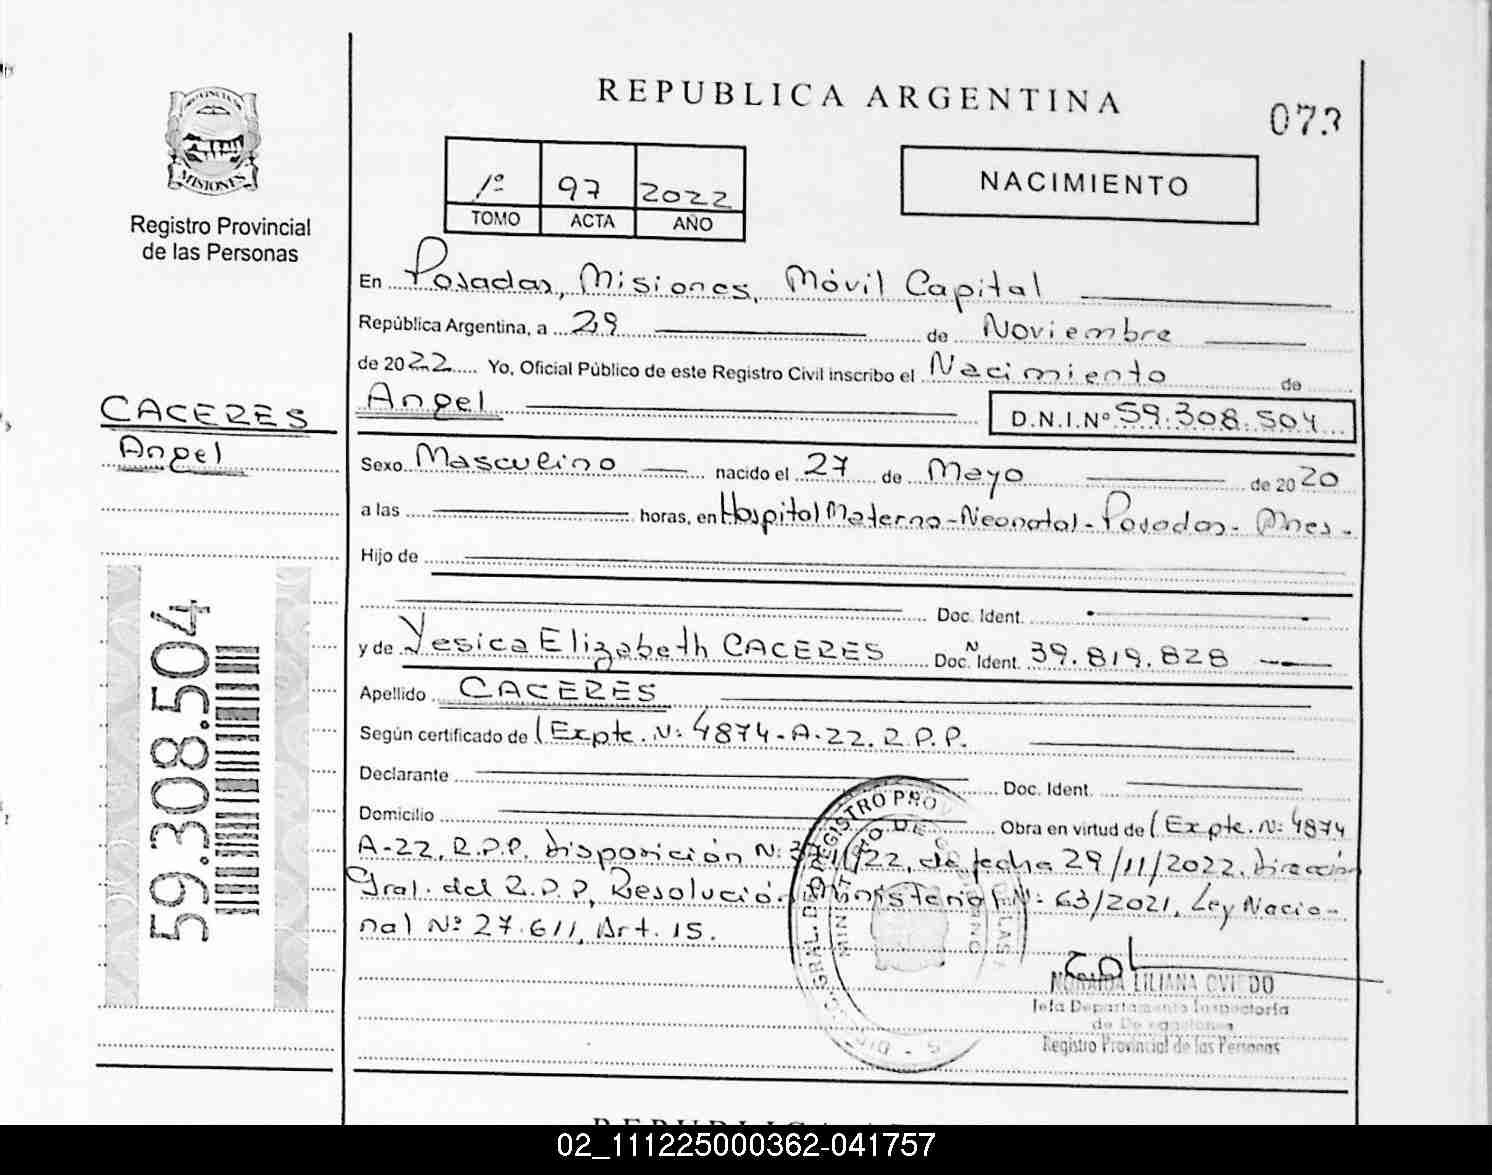 REPUBLICA ARGENTINA
073
PROVINCIA DE
MISIONES
Registro Provincial
de las Personas
1º 97 2022
TOMO ACTA AÑO
NACIMIENTO
En Posadas, Misiones, Móvil Capital
República Argentina, a 29 de Noviembre
de 2022 Yo, Oficial Público de este Registro Civil inscribo el Nacimiento de
Angel D.N.I.Nº 59.308.504
CACERES
Angel
Sexo Masculino nacido el 27 de Mayo de 2020
a las horas, en Hospital Materno-Neonatal-Posadas- Mnes-
Hijo de
Doc. Ident.
y de Yesica Elizabeth CACERES Doc. Ident. N 39.819.828
Apellido CACERES
Según certificado de (Expte. N: 4874-A-22. R.P.P.
Declarante Doc. Ident.
Domicilio Obra en virtud de (Expte. N: 4874
A-22. R.P.P. Disposición N: /22, de fecha 29/11/2022. Dirección
Gral. del R.P.P, Resolución Ministerial N: 63/2021, Ley Nacio-
nal Nº 27.611, Art. 15.
59.308.504
GRAL. DEL REGISTRO PROV
MINISTERIO DE
LILIANA OVIEDO
Jefa Departamento Inspectoría
de Delegaciones
Registro Provincial de las Personas
02_111225000362-041757